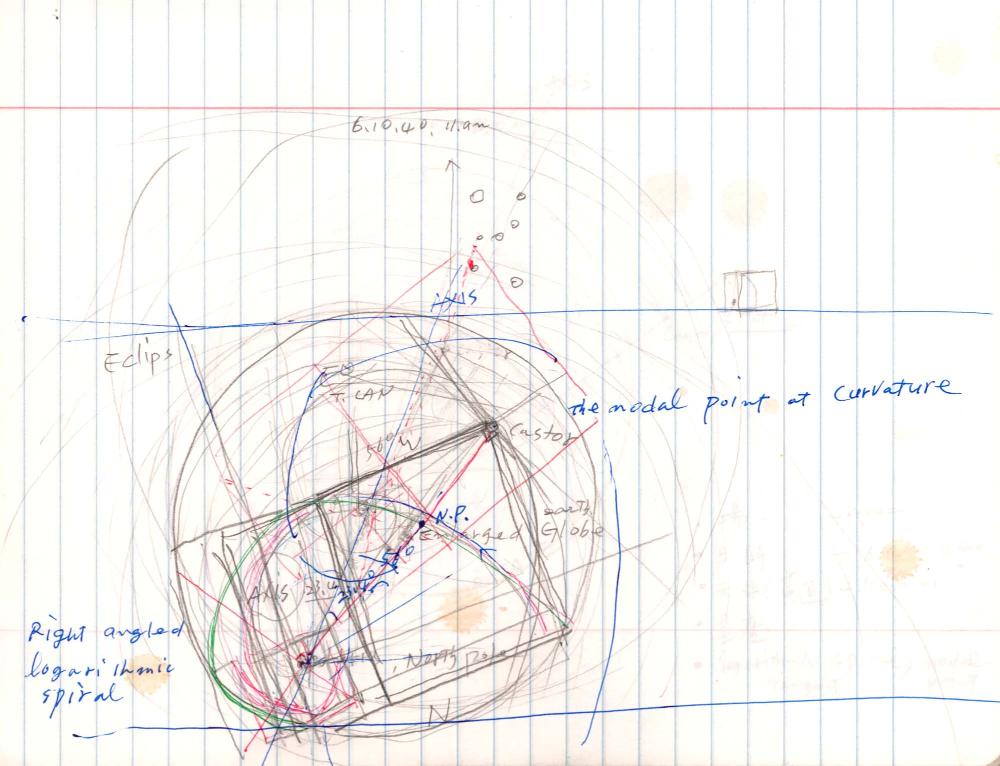 6.10.40, 11.am
AXIS
Eclips
T. LAN
the nodal point at curvature
56° W
Castor
N.P.
Enlarged
earth
Globe
56°
AXIS 23.4°
Right angled
logarithmic
spiral
North pole
N